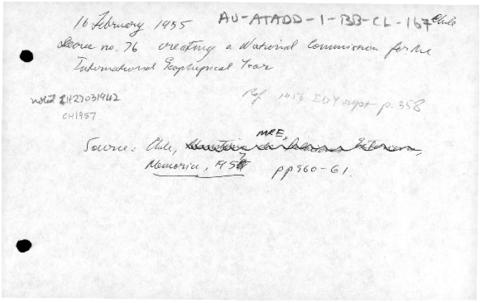 16 February 1955 AU-ATADD-1-BB-CL-167 Chile
Decree no. 76 creating a National Commission for the
International Geophysical Year
CH27031962
CH1957
Ref p. 358
Source: Chile, MRE,
Memoria, 195 pp 960-61.